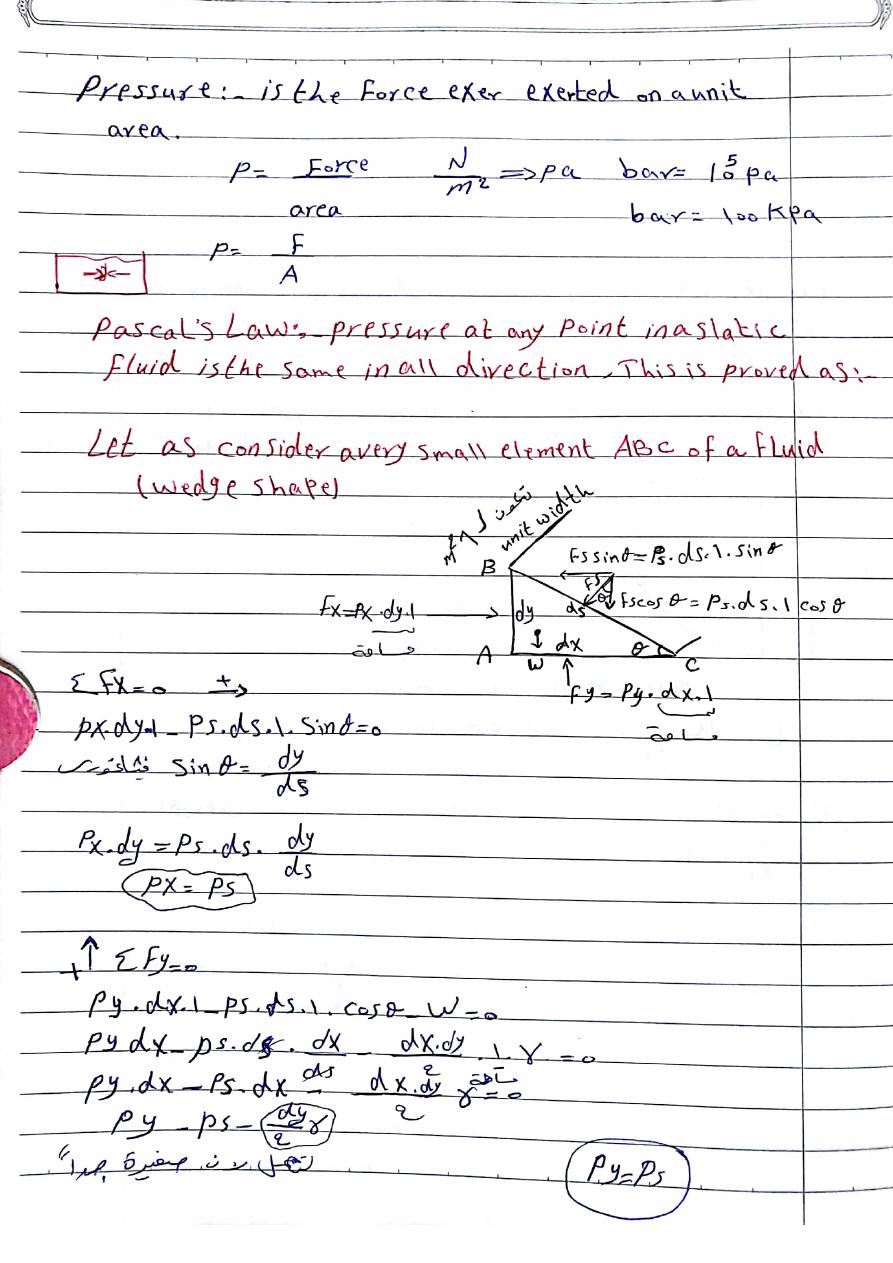 Pressure:- is the Force exer exerted on a unit
area.
P= Force/area N/m² => pa bar= 10⁵ pa
bar= 100 Kpa
P= F/A
Pascal's Law:- pressure at any Point in a static
fluid is the same in all direction, This is proved as:-
Let as consider a very small element ABC of a fluid
(wedge shape)
تكون m²
unit width
B
Fs sinθ = Ps. ds.1. sin θ
Fs
θ
Fs cos θ = Ps. ds. 1 cos θ
Fx=Px.dy.1
مساحة
dy
ds
A
W
dx
θ
C
Fy= Py. dx.1
مساحة
ΣFx=0 +→
Px.dy.1 - Ps.ds.1. Sinθ=0
Sinθ= dy/ds
Px.dy = Ps.ds. dy/ds
Px= Ps
+↑ ΣFy=0
Py.dx.1 - Ps.ds.1. cosθ - W=0
Py dx - Ps.ds. dx/ds - dx.dy/2 .1.γ =0
Py.dx - Ps.dx - dx.dy/2 γ=0
Py - Ps - dy/2 γ
تهمل صغيرة جداً
Py=Ps